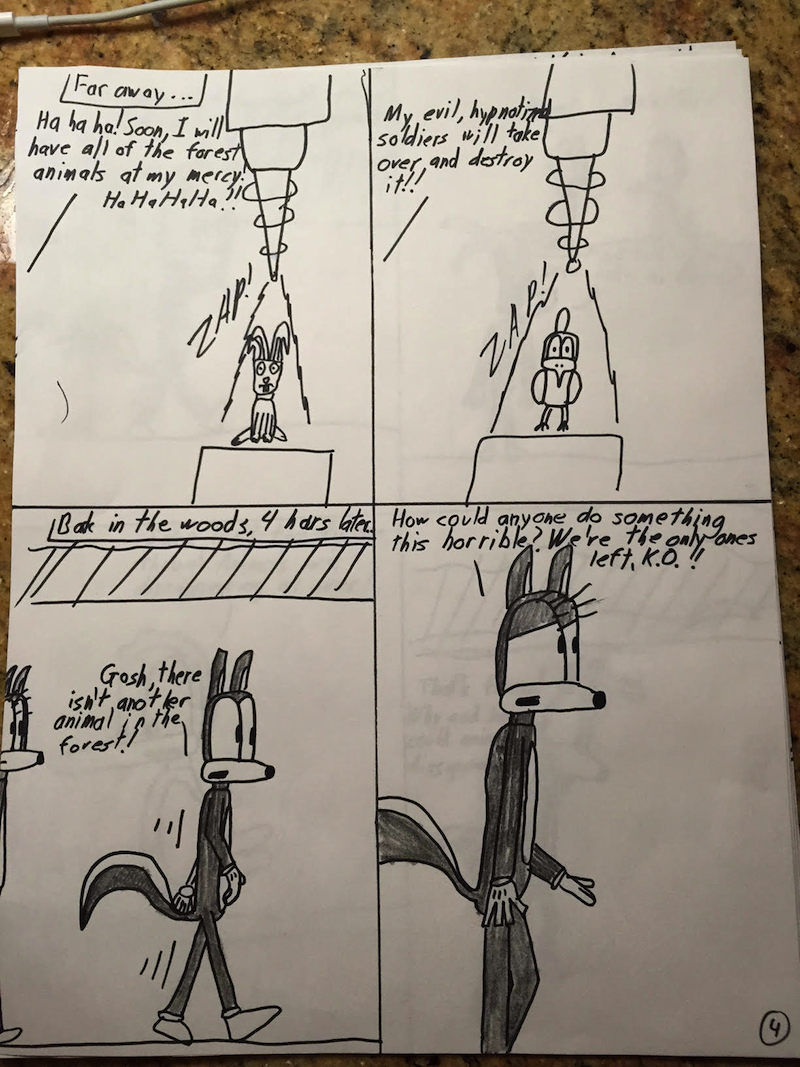 Far away...
Ha ha ha! Soon, I will
have all of the forest
animals at my mercy!
Ha Ha Ha Ha!!
ZAP!
My evil, hypnotized
soldiers will take
over and destroy
it!!
ZAP!
Back in the woods, 4 hours later.
Gosh, there
isn't another
animal in the
forest!
How could anyone do something
this horrible? We're the only ones
left, K.O.!!
4